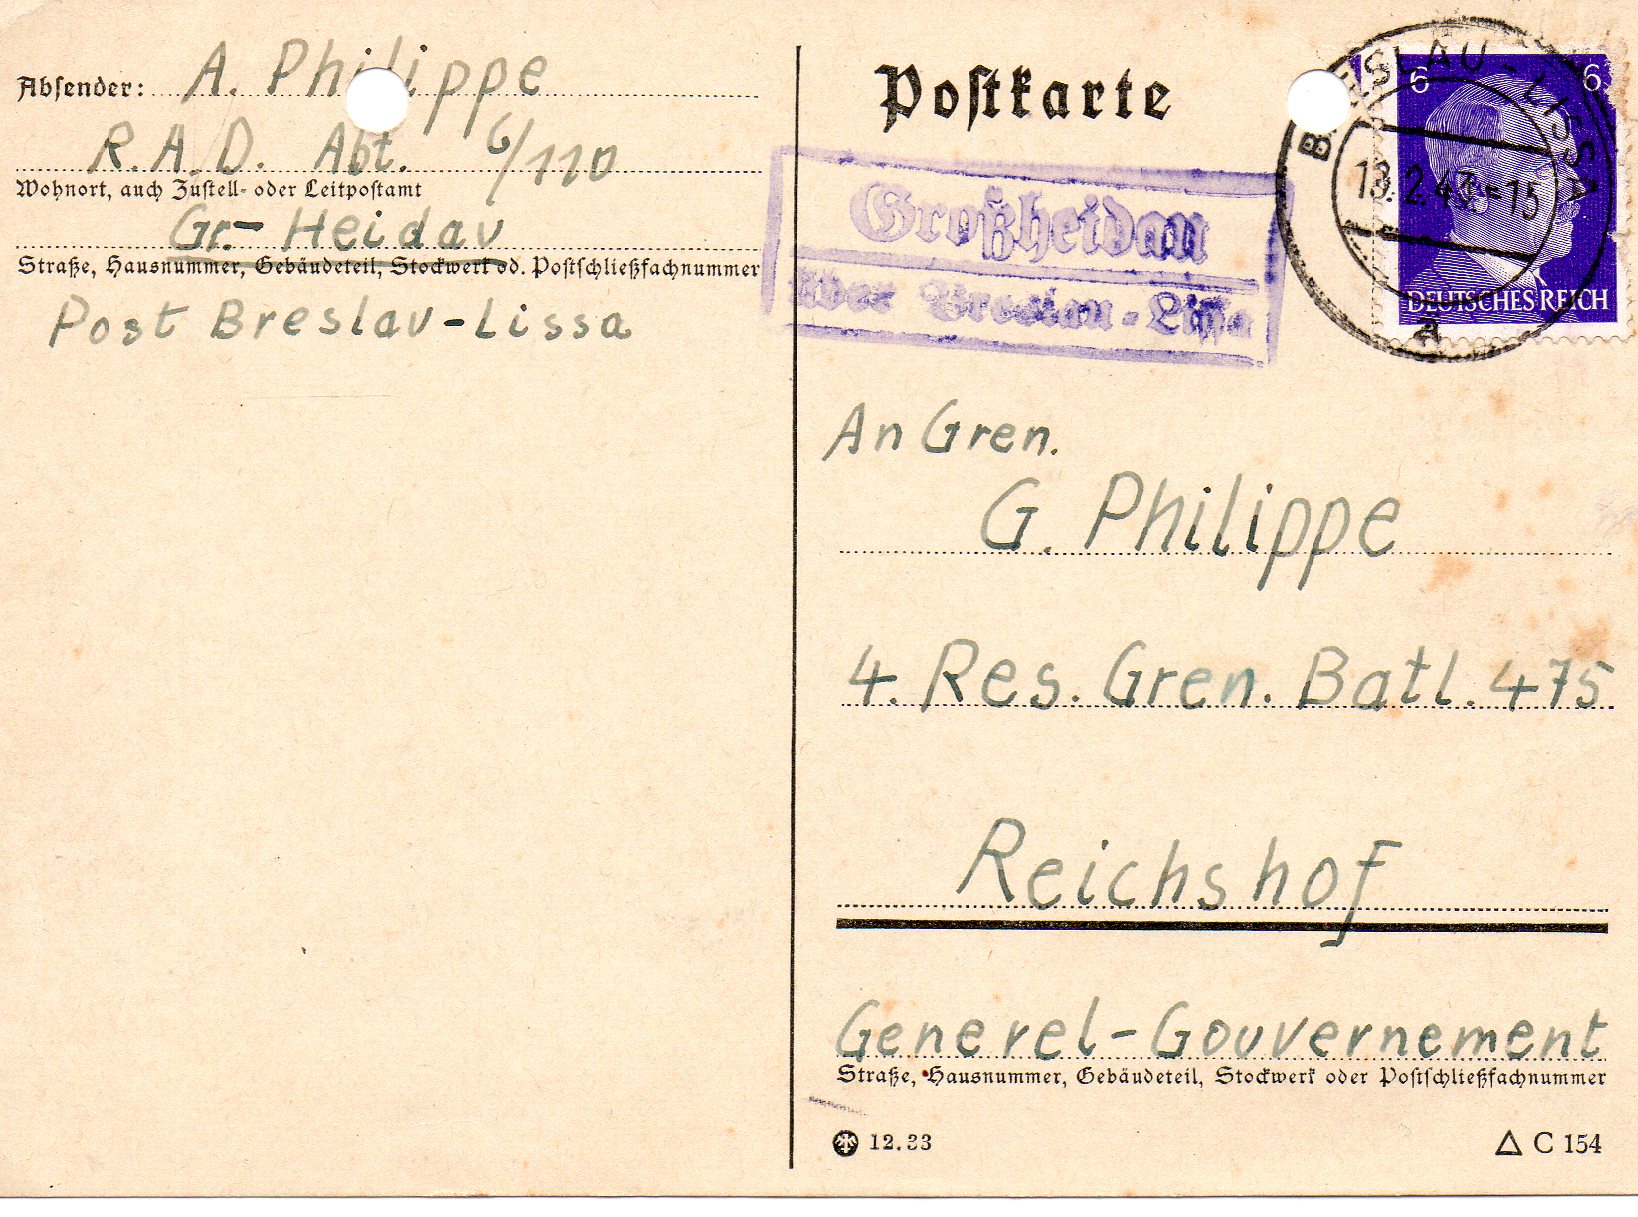 Absender: A. Philippe
R.A.D. Abt. 6/110
Wohnort, auch Zustell- oder Leitpostamt
Gr.- Heidau
Straße, Hausnummer, Gebäudeteil, Stockwerk od. Postschließfachnummer
Post Breslau-Lissa
Postkarte
Großheidau
über Breslau-Lissa
BRESLAU-LISSA
18.2.43-15
A
6 6
DEUTSCHES REICH
An Gren.
G. Philippe
4. Res. Gren. Batl. 475
Reichshof
Generel-Gouvernement
Straße, Hausnummer, Gebäudeteil, Stockwerk oder Postschließfachnummer
12.33
C 154